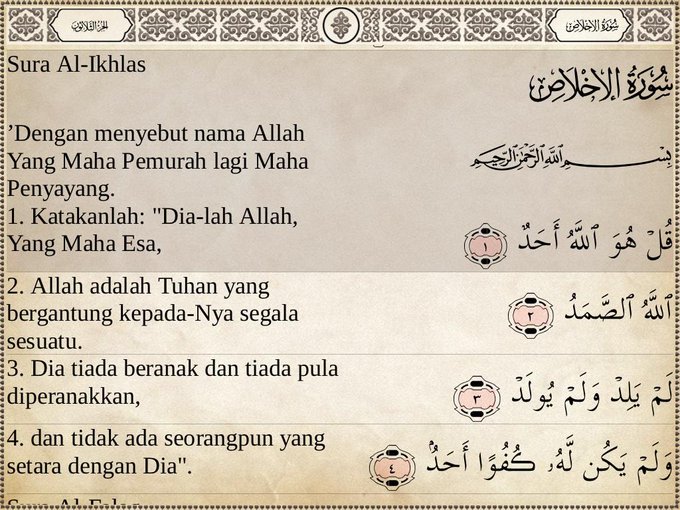 الجزء الثلاثون
سورة الإخلاص
Sura Al-Ikhlas
سُورَةُ الإِخْلَاصِ
’Dengan menyebut nama Allah
Yang Maha Pemurah lagi Maha
Penyayang.
بِسْمِ ٱللَّهِ ٱلرَّحْمَٰنِ ٱلرَّحِيمِ
1. Katakanlah: "Dia-lah Allah,
Yang Maha Esa,
قُلْ هُوَ ٱللَّهُ أَحَدٌ ١
2. Allah adalah Tuhan yang
bergantung kepada-Nya segala
sesuatu.
ٱللَّهُ ٱلصَّمَدُ ٢
3. Dia tiada beranak dan tiada pula
diperanakkan,
لَمْ يَلِدْ وَلَمْ يُولَدْ ٣
4. dan tidak ada seorangpun yang
setara dengan Dia".
وَلَمْ يَكُن لَّهُۥ كُفُوًا أَحَدٌۢ ٤